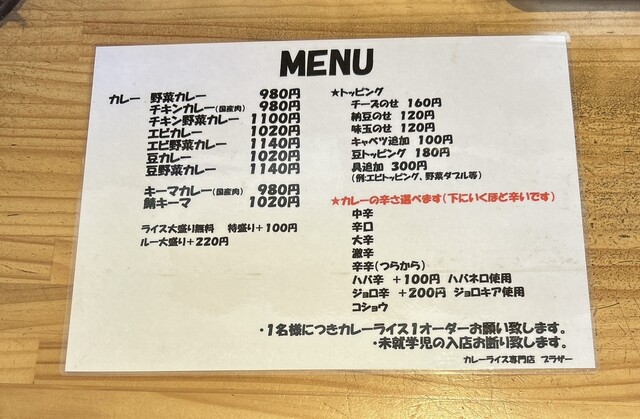 MENU
カレー 野菜カレー 980円
チキンカレー(国産肉) 980円
チキン野菜カレー 1100円
エビカレー 1020円
エビ野菜カレー 1140円
豆カレー 1020円
豆野菜カレー 1140円
キーマカレー(国産肉) 980円
鯖キーマ 1020円
ライス大盛り無料 特盛り+100円
ルー大盛り+220円
★トッピング
チーズのせ 160円
納豆のせ 120円
味玉のせ 120円
キャベツ追加 100円
豆トッピング 180円
具追加 300円
(例:エビトッピング、野菜ダブル等)
★カレーの辛さ選べます(下にいくほど辛いです)
中辛
辛口
大辛
激辛
辛辛(つらから)
ハバ辛 +100円 ハバネロ使用
ジョロ辛 +200円 ジョロキア使用
コショウ
・1名様につきカレーライス1オーダーお願い致します。
・未就学児の入店お断り致します。
カレーライス専門店 ブラザー